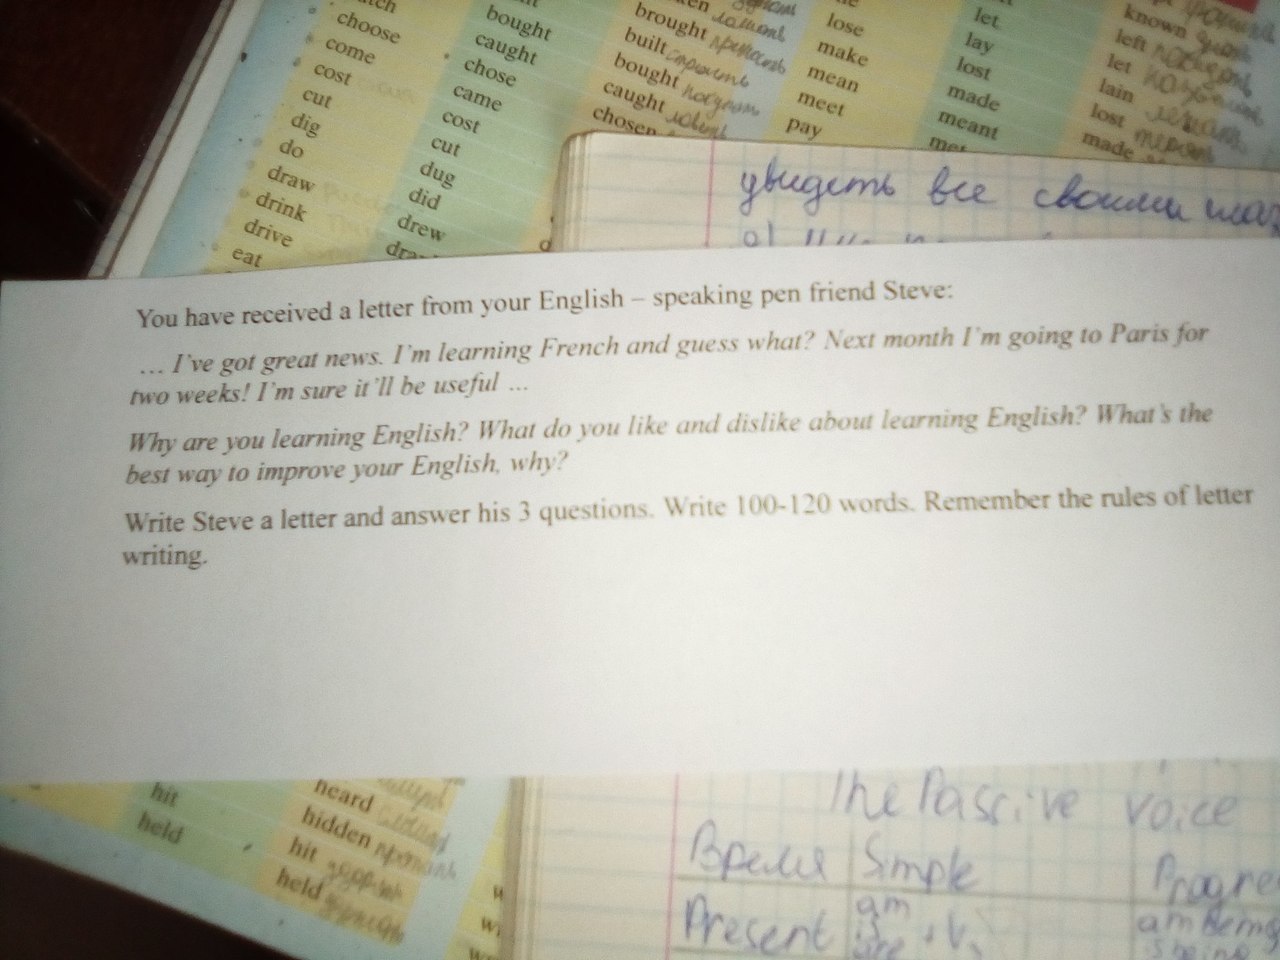 choose
come
cost
cut
dig
do
draw
drink
drive
eat
bought
caught
chose
came
cost
cut
dug
did
drew
brought приносить
built строить
bought
caught
chosen
lose
make
mean
meet
pay
let
lay
lost
made
meant
known
left
let
lain
lost
made
увидеть все своими
You have received a letter from your English – speaking pen friend Steve:
… I've got great news. I'm learning French and guess what? Next month I'm going to Paris for
two weeks! I'm sure it'll be useful …
Why are you learning English? What do you like and dislike about learning English? What's the
best way to improve your English, why?
Write Steve a letter and answer his 3 questions. Write 100-120 words. Remember the rules of letter
writing.
hit
held
heard
hidden
hit
held
The Passive voice
Время Simple
Present am
is
are